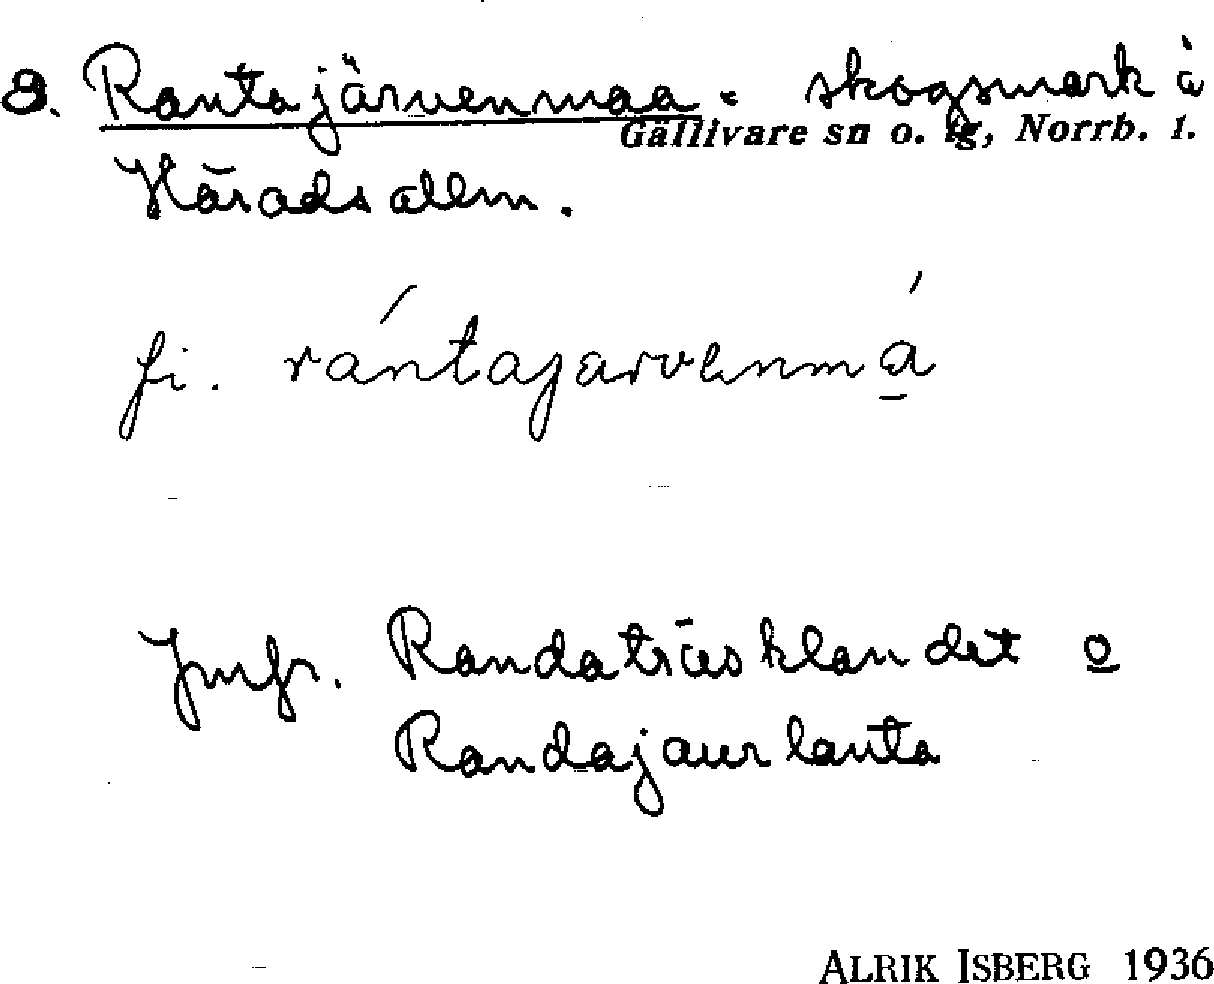 8. Rantajärvenmaa = skogsmark å
Gällivare sn o. lg, Norrb. l.
Häradsallm.
fi. rántajarvenmá
Jmfr. Randaträsklandet o
Randajaurlanta
ALRIK ISBERG 1936